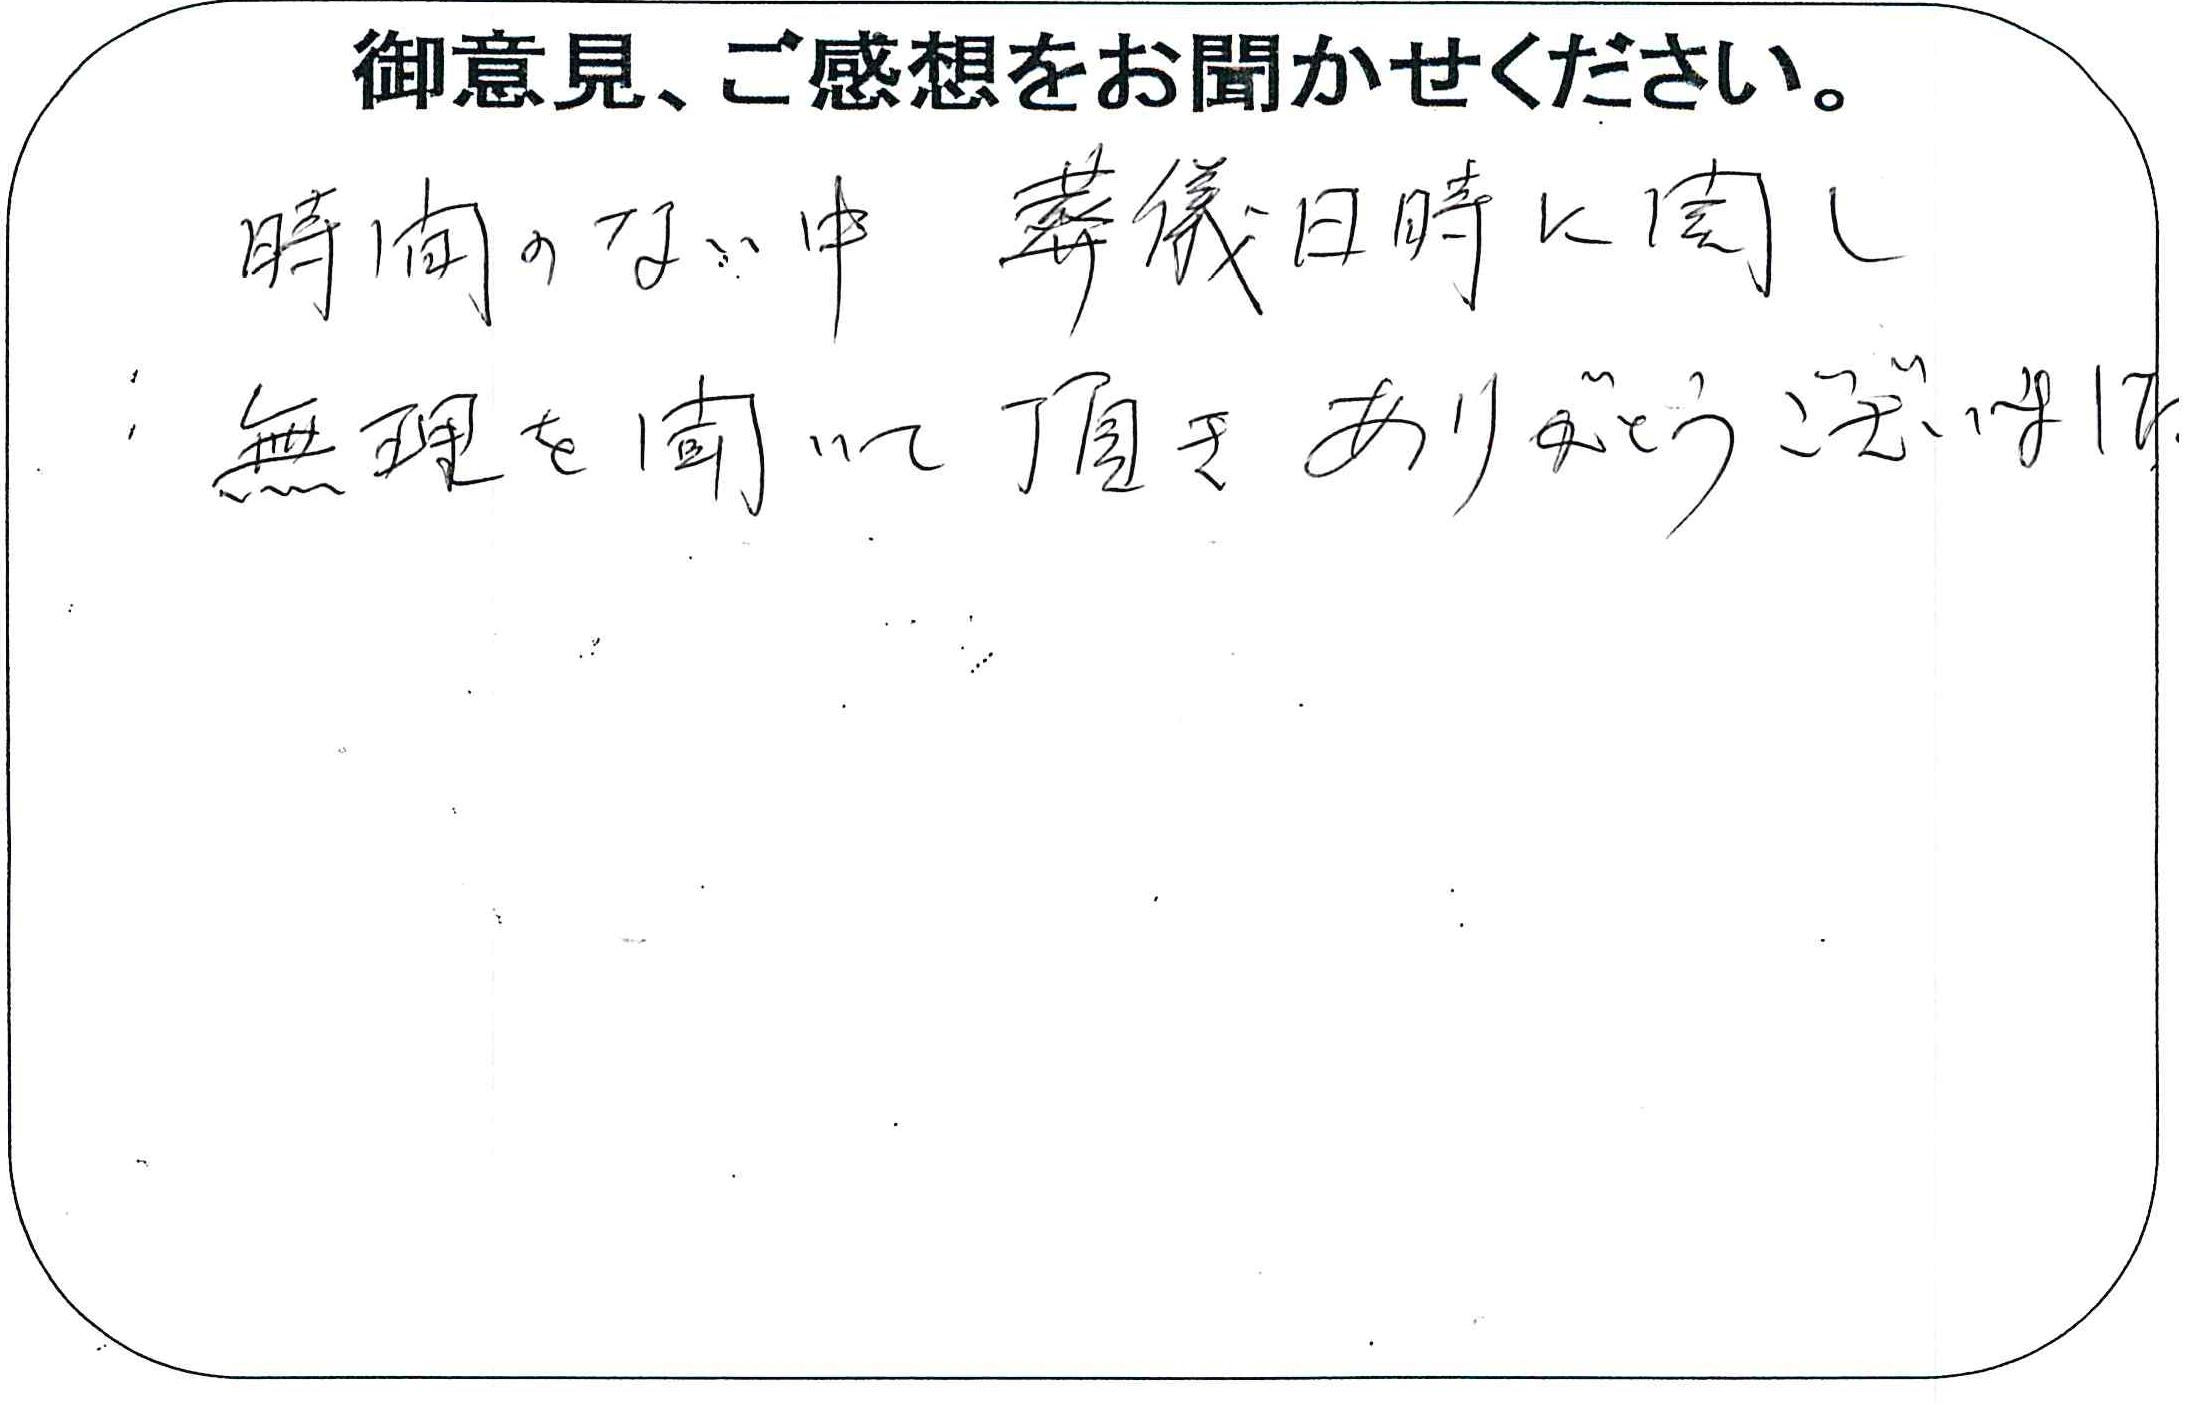 御意見、ご感想をお聞かせください。
時間のない中 葬儀日時に関し
無理を聞いて頂き ありがとうございました